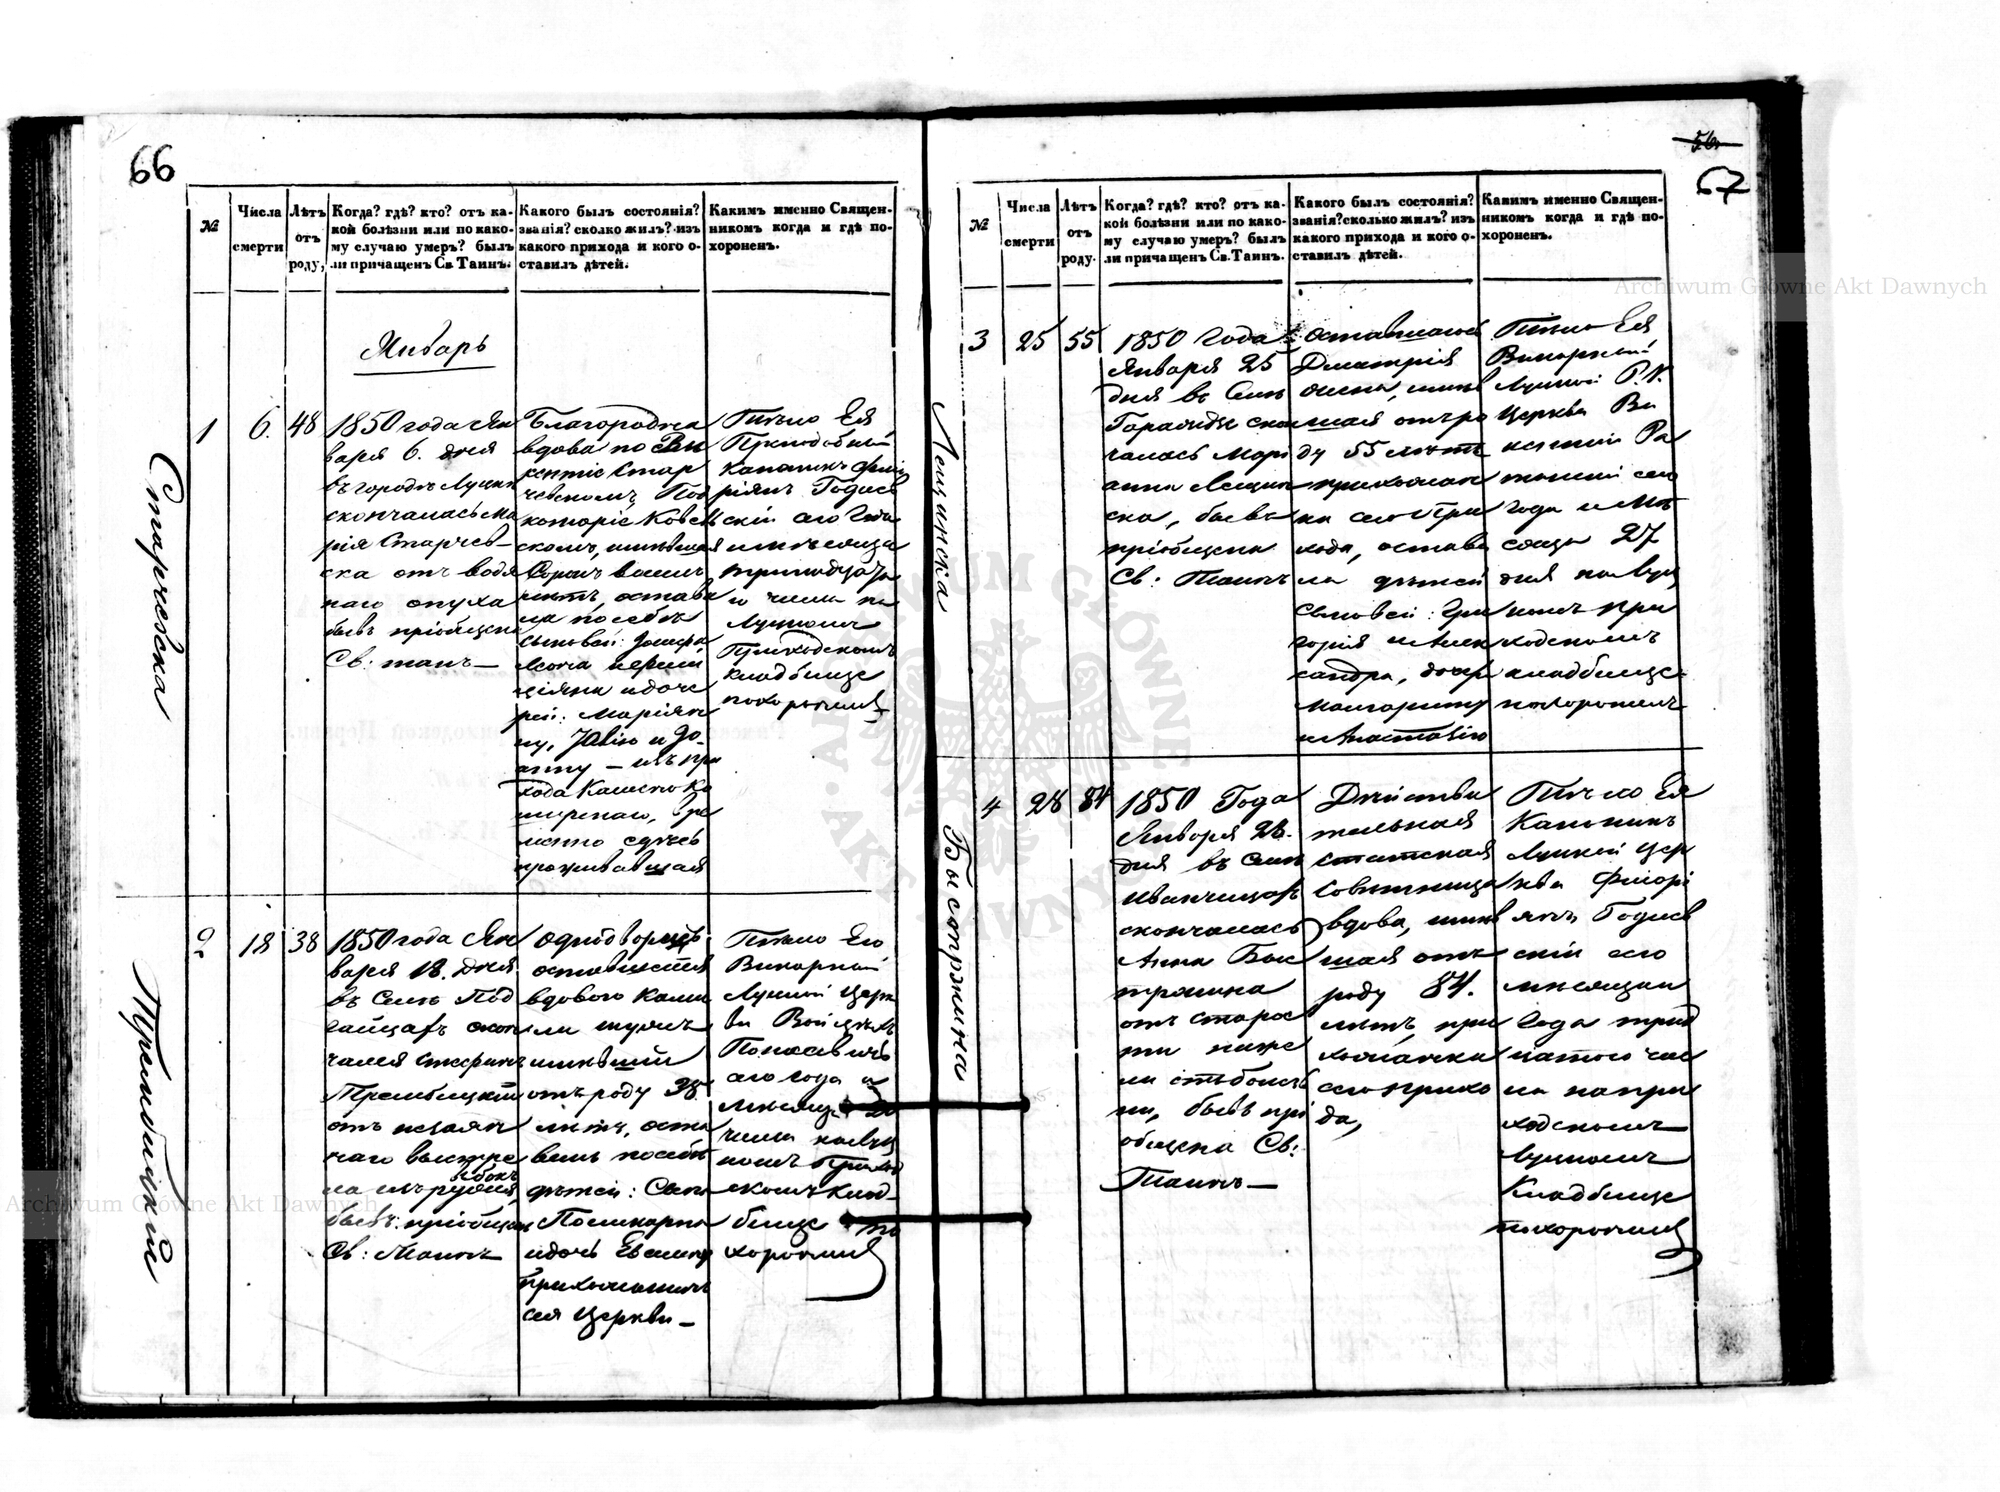 66
№
Числа смерти
Лѣтъ отъ роду,
Когда? гдѣ? кто? отъ ка-
кой болѣзни или по како-
му случаю умеръ? былъ
ли причащенъ Св. Таинъ.
Какого былъ состоянія?
званія? сколко жилъ? изъ
какого прихода и кого о-
ставилъ дѣтей.
Какимъ именно Священ-
никомъ когда и гдѣ по-
хороненъ.
Январь
Старчевска
1
6.
48
1850 года Ян
варя 6. дня
въ городѣ Луцкѣ
скончалась Ма
рія Старчев-
ска отъ водя
наго опуха
бывъ пріобщена
Св: таинъ —
Благородна
вдова по Вин
кентіе Стар
чевскомъ, Под
коморіе Ковель
скомъ, имѣвшая
Сорокъ восемь
лѣтъ, остави
ла по себѣ
сыновей:
рей: Маріян
ну,
анну — изъ при
хода Камень Ка
ширскаго, вре
менно здѣсь
проживавшая
Тѣло Ея
Каноникъ Флор
ріянъ Годлев
скій сего Года
и мѣсяца
тринадцата
го числа на
Луцкомъ
Приходскомъ
кладбище
похоронилъ
2
18
38
1850 года Ян
варя 18. дня
въ Селѣ Под
гайцахъ скон
чался Стефанъ
Трембицкій
отъ нечаян
наго выстре
ла изъ ружья
бывъ пріобщенъ
Св: Таинъ
Однодворецъ
оставшейся
вдовою Ками
ли мужъ
имѣвшій
отъ роду 38
лѣтъ, оста
вилъ по себѣ
дѣтей: Сына
Поликарпа
и дочь Евелину
прихожанинъ
сея Церкви —
Тѣло Его
Викарный
Луцкой Церк
ви Войцѣхъ
сего года и
мѣсяца 20
числа на Луц
комъ Приход
скомъ клад-
бище по
хоронилъ
№
Числа смерти
Лѣтъ отъ роду.
Когда? гдѣ? кто? отъ ка-
кой болѣзни или по како-
му случаю умеръ? былъ
ли причащенъ Св. Таинъ.
Какого былъ состоянія?
званія? сколко жилъ? изъ
какого прихода и кого о-
ставилъ дѣтей.
Какимъ именно Священ-
никомъ когда и гдѣ по-
хороненъ.
56.
67
3
25
55
1850 Года
Января 25
дня въ Селѣ
чалась Марі
анна Лещин
ска, бывъ
пріобщена
Св: Таинъ
оставшаяся
Дмитрія
жена, имѣв
шая отъ ро
ду 55 лѣтъ
прихожан
ка сего При
хода, остави
ла дѣтей
Сыновей: Гри
горія и Алек
сандра, дочер
Маргариту
и Анастазію
Тѣло Ея
Викарный
Луцкой Р. К.
Церкви Ви
сего
Года и Мѣ
сяца 27
дня на Луц
комъ при
ходскомъ
кладбище
похоронилъ
4
28
84
1850 Года
Января 28.
дня въ Селѣ
Иванчицахъ
скончалась
Анна Быс
тржинка
отъ старос
ти нуже
ни отъ болѣз
ни, бывъ прі
общена Св:
Таинъ —
Дѣйстви
тельная
Статская
Совѣтница
вдова, имѣв
шая отъ
роду 84.
лѣтъ, при
хожанка
сего прихо
да,
Тѣло Ея
Каноникъ
Луцкой Цер
кви Флорі
янъ Годлев
скій сего
мѣсяца и
Года трид
цатого чис
ла на при
ходскомъ
Луцкомъ
Кладбище
похоронилъ
Archiwum Główne Akt Dawnych
Archiwum Główne Akt Dawnych
ARCHIWUM GŁÓWNE AKT DAWNYCH